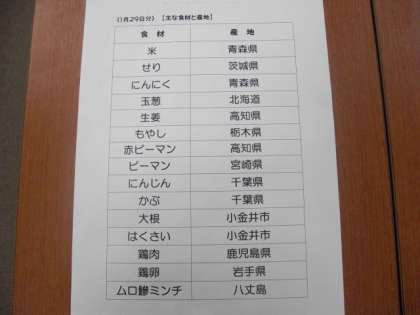 (1月29日分) 【主な食材と産地】
食 材 産 地
米 青森県
せり 茨城県
にんにく 青森県
玉葱 北海道
生姜 高知県
もやし 栃木県
赤ピーマン 高知県
ピーマン 宮崎県
にんじん 千葉県
かぶ 千葉県
大根 小金井市
はくさい 小金井市
鶏肉 鹿児島県
鶏卵 岩手県
ムロ鯵ミンチ 八丈島